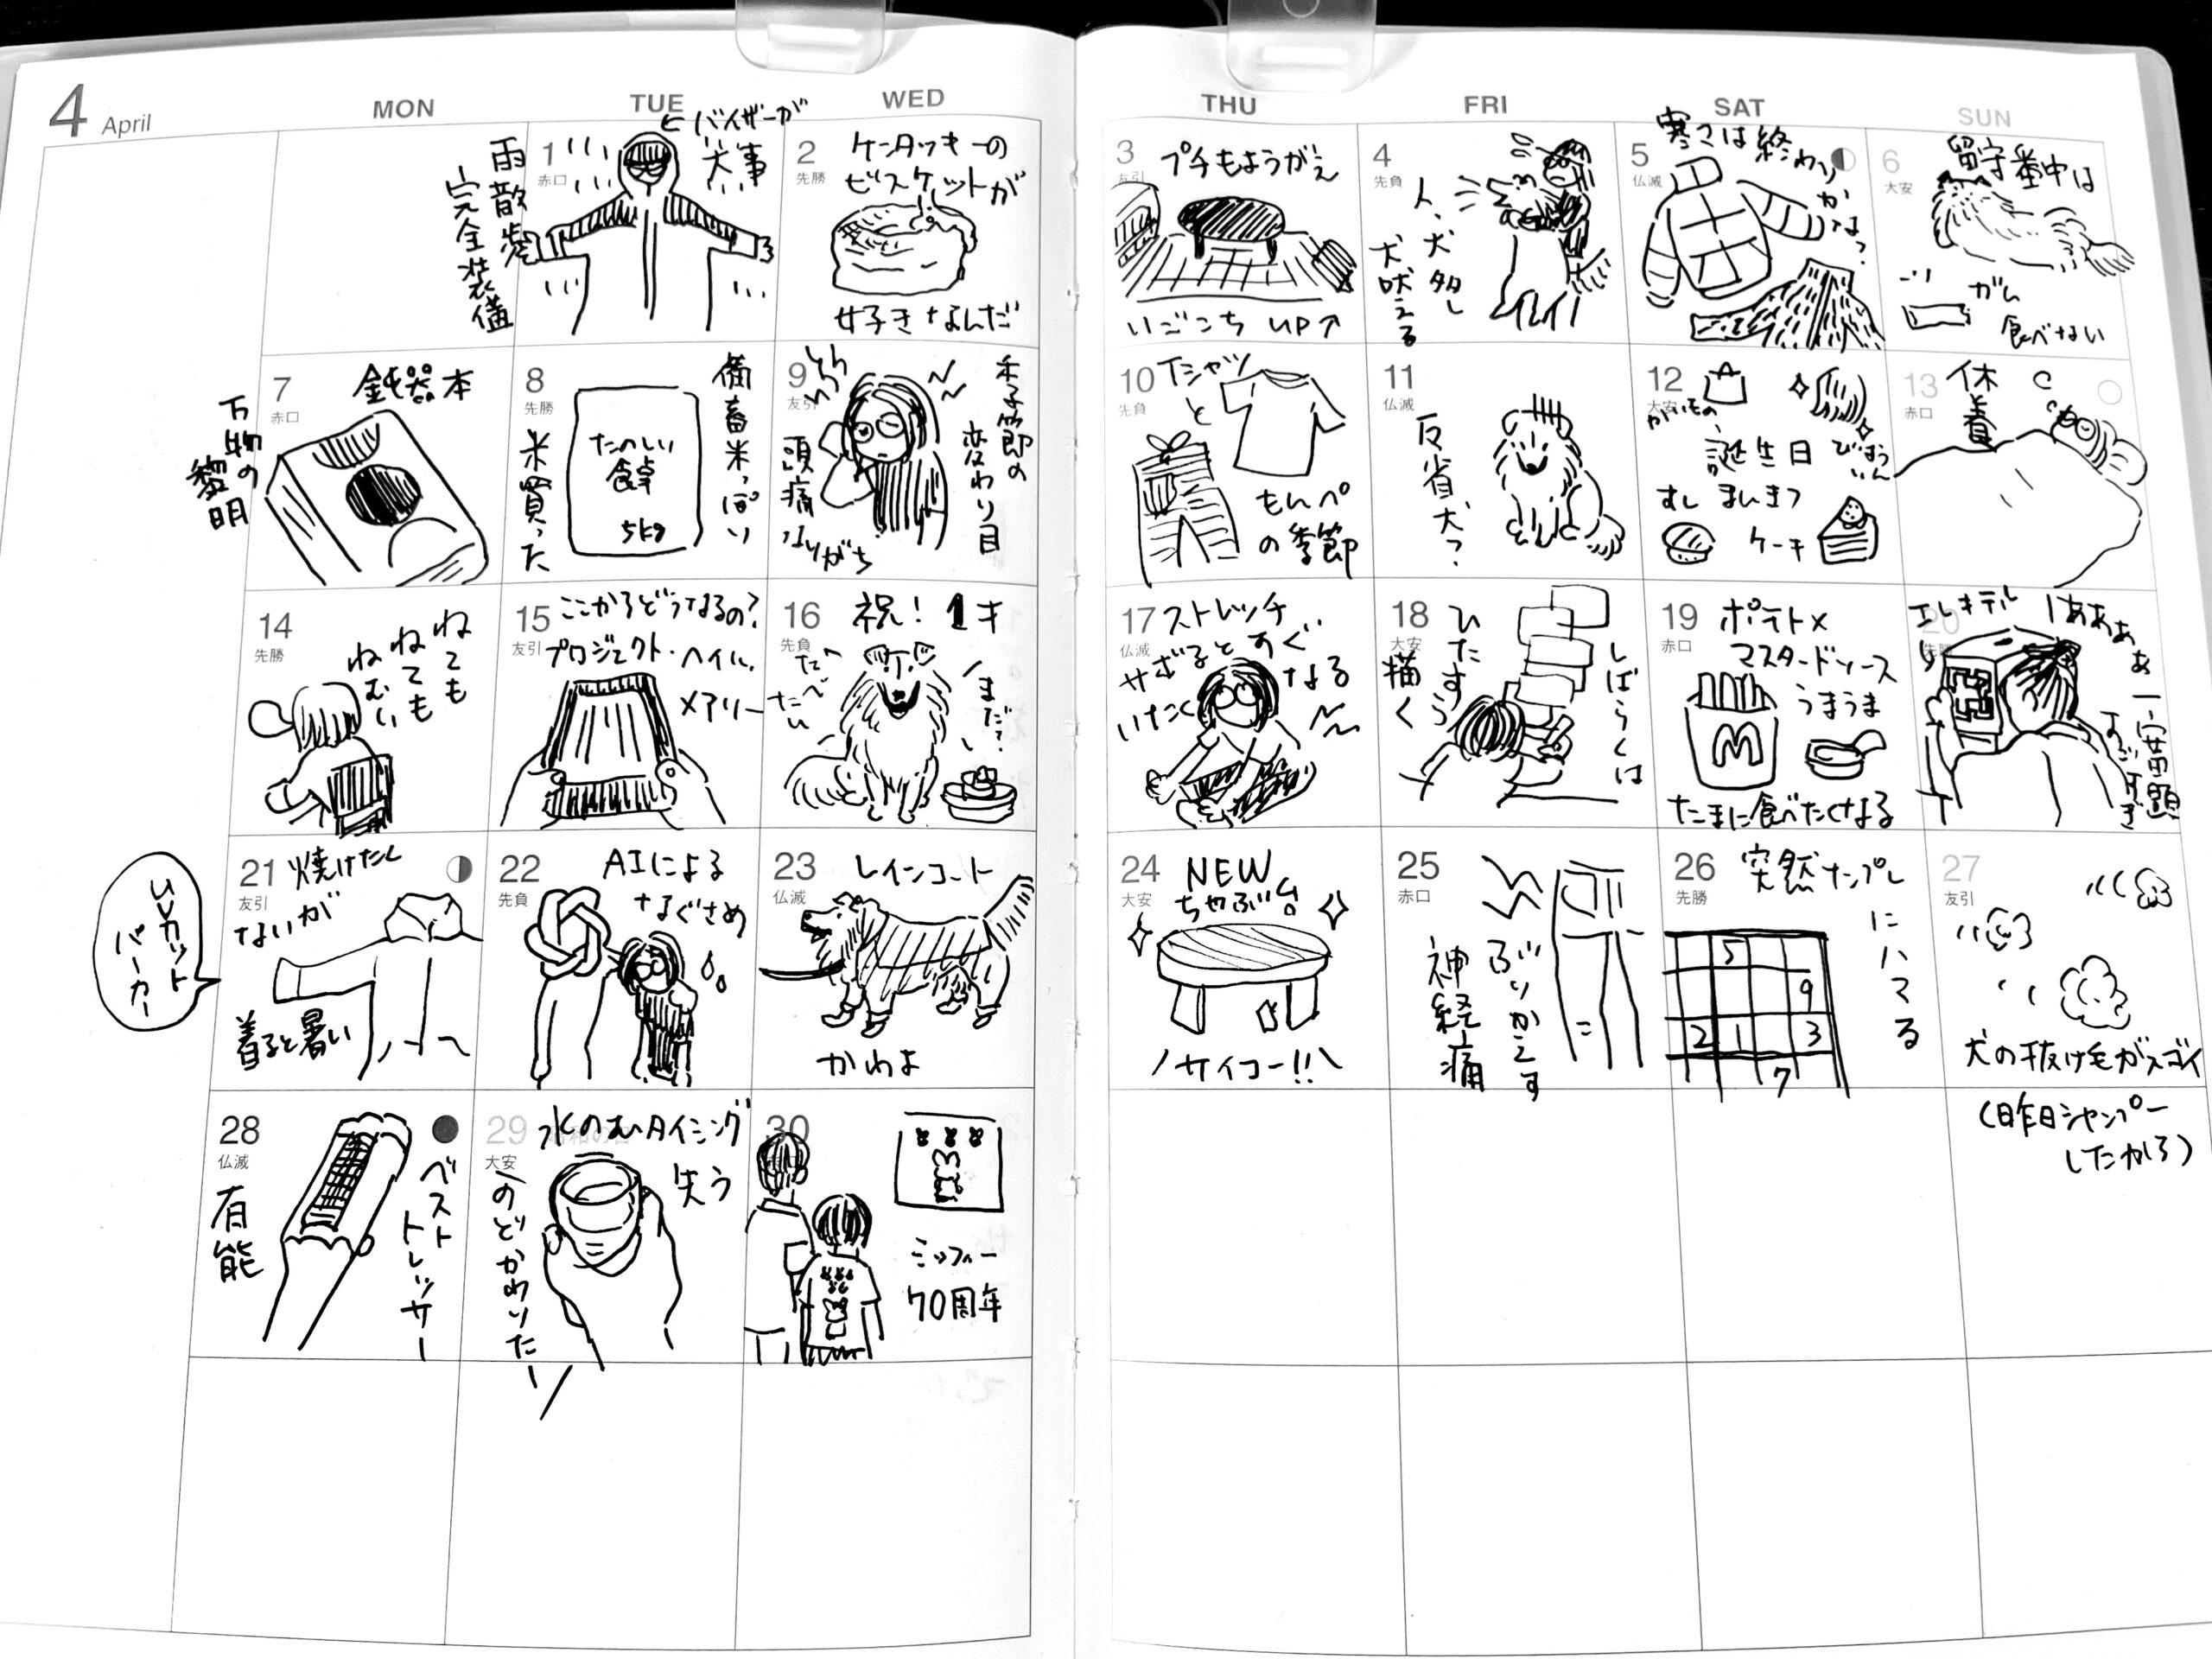 4 April
MON
TUE
WED
THU
FRI
SAT
SUN
1
赤口
雨散歩
完全装備
←バイザーが
大事
2
先勝
ケンタッキーの
ビスケットが
好きなんだ
3
友引
プチもようがえ
いごこち UP↑
4
先負
人、犬多し
犬吠える
5
仏滅
寒さは終わり
かな?
6
大安
留守番中は
ガム
食べない
7
赤口
鈍器本
万物の
黎明
8
先勝
備蓄米っぽい
米買った
たのしい
食卓
5kg
9
友引
季節の
変わり目
頭痛
ながち
10
先負
Tシャツ
と
もんぺ
の季節
11
仏滅
反省犬?
12
大安
かいもの、
びよういん
誕生日
すし まんきつ
ケーキ
13
赤口
休養
14
先勝
ねても
ねても
ねむい
15
友引
ここからどうなるの?
プロジェクト・ヘイル・
メアリー
16
先負
祝!1才
たべたい
まだ?
17
仏滅
ストレッチ
サボるとすぐ
いたくなる
18
大安
ひたすら
描く
しばらくは
19
赤口
ポテト×
マスタードソース
うまうま
M
たまに食べたくなる
20
エレキテル
21
友引
焼けたく
ないが
着ると暑い
UVカット
パーカー
22
先負
AIによる
なぐさめ
23
仏滅
レインコート
かわよ
24
大安
NEW
ちゃぶ台
サイコー!!
25
赤口
ぶりかえす
神経痛
26
先勝
突然ナンプレ
にハマる
5
9
2 1 3
7
27
友引
犬の抜け毛がスゴイ
(昨日シャンプー
したから)
28
仏滅
有能
ベスト
トレッサー
29
大安
水のむタイミング
失う
のどかわいたー
30
ミッフィー
70周年